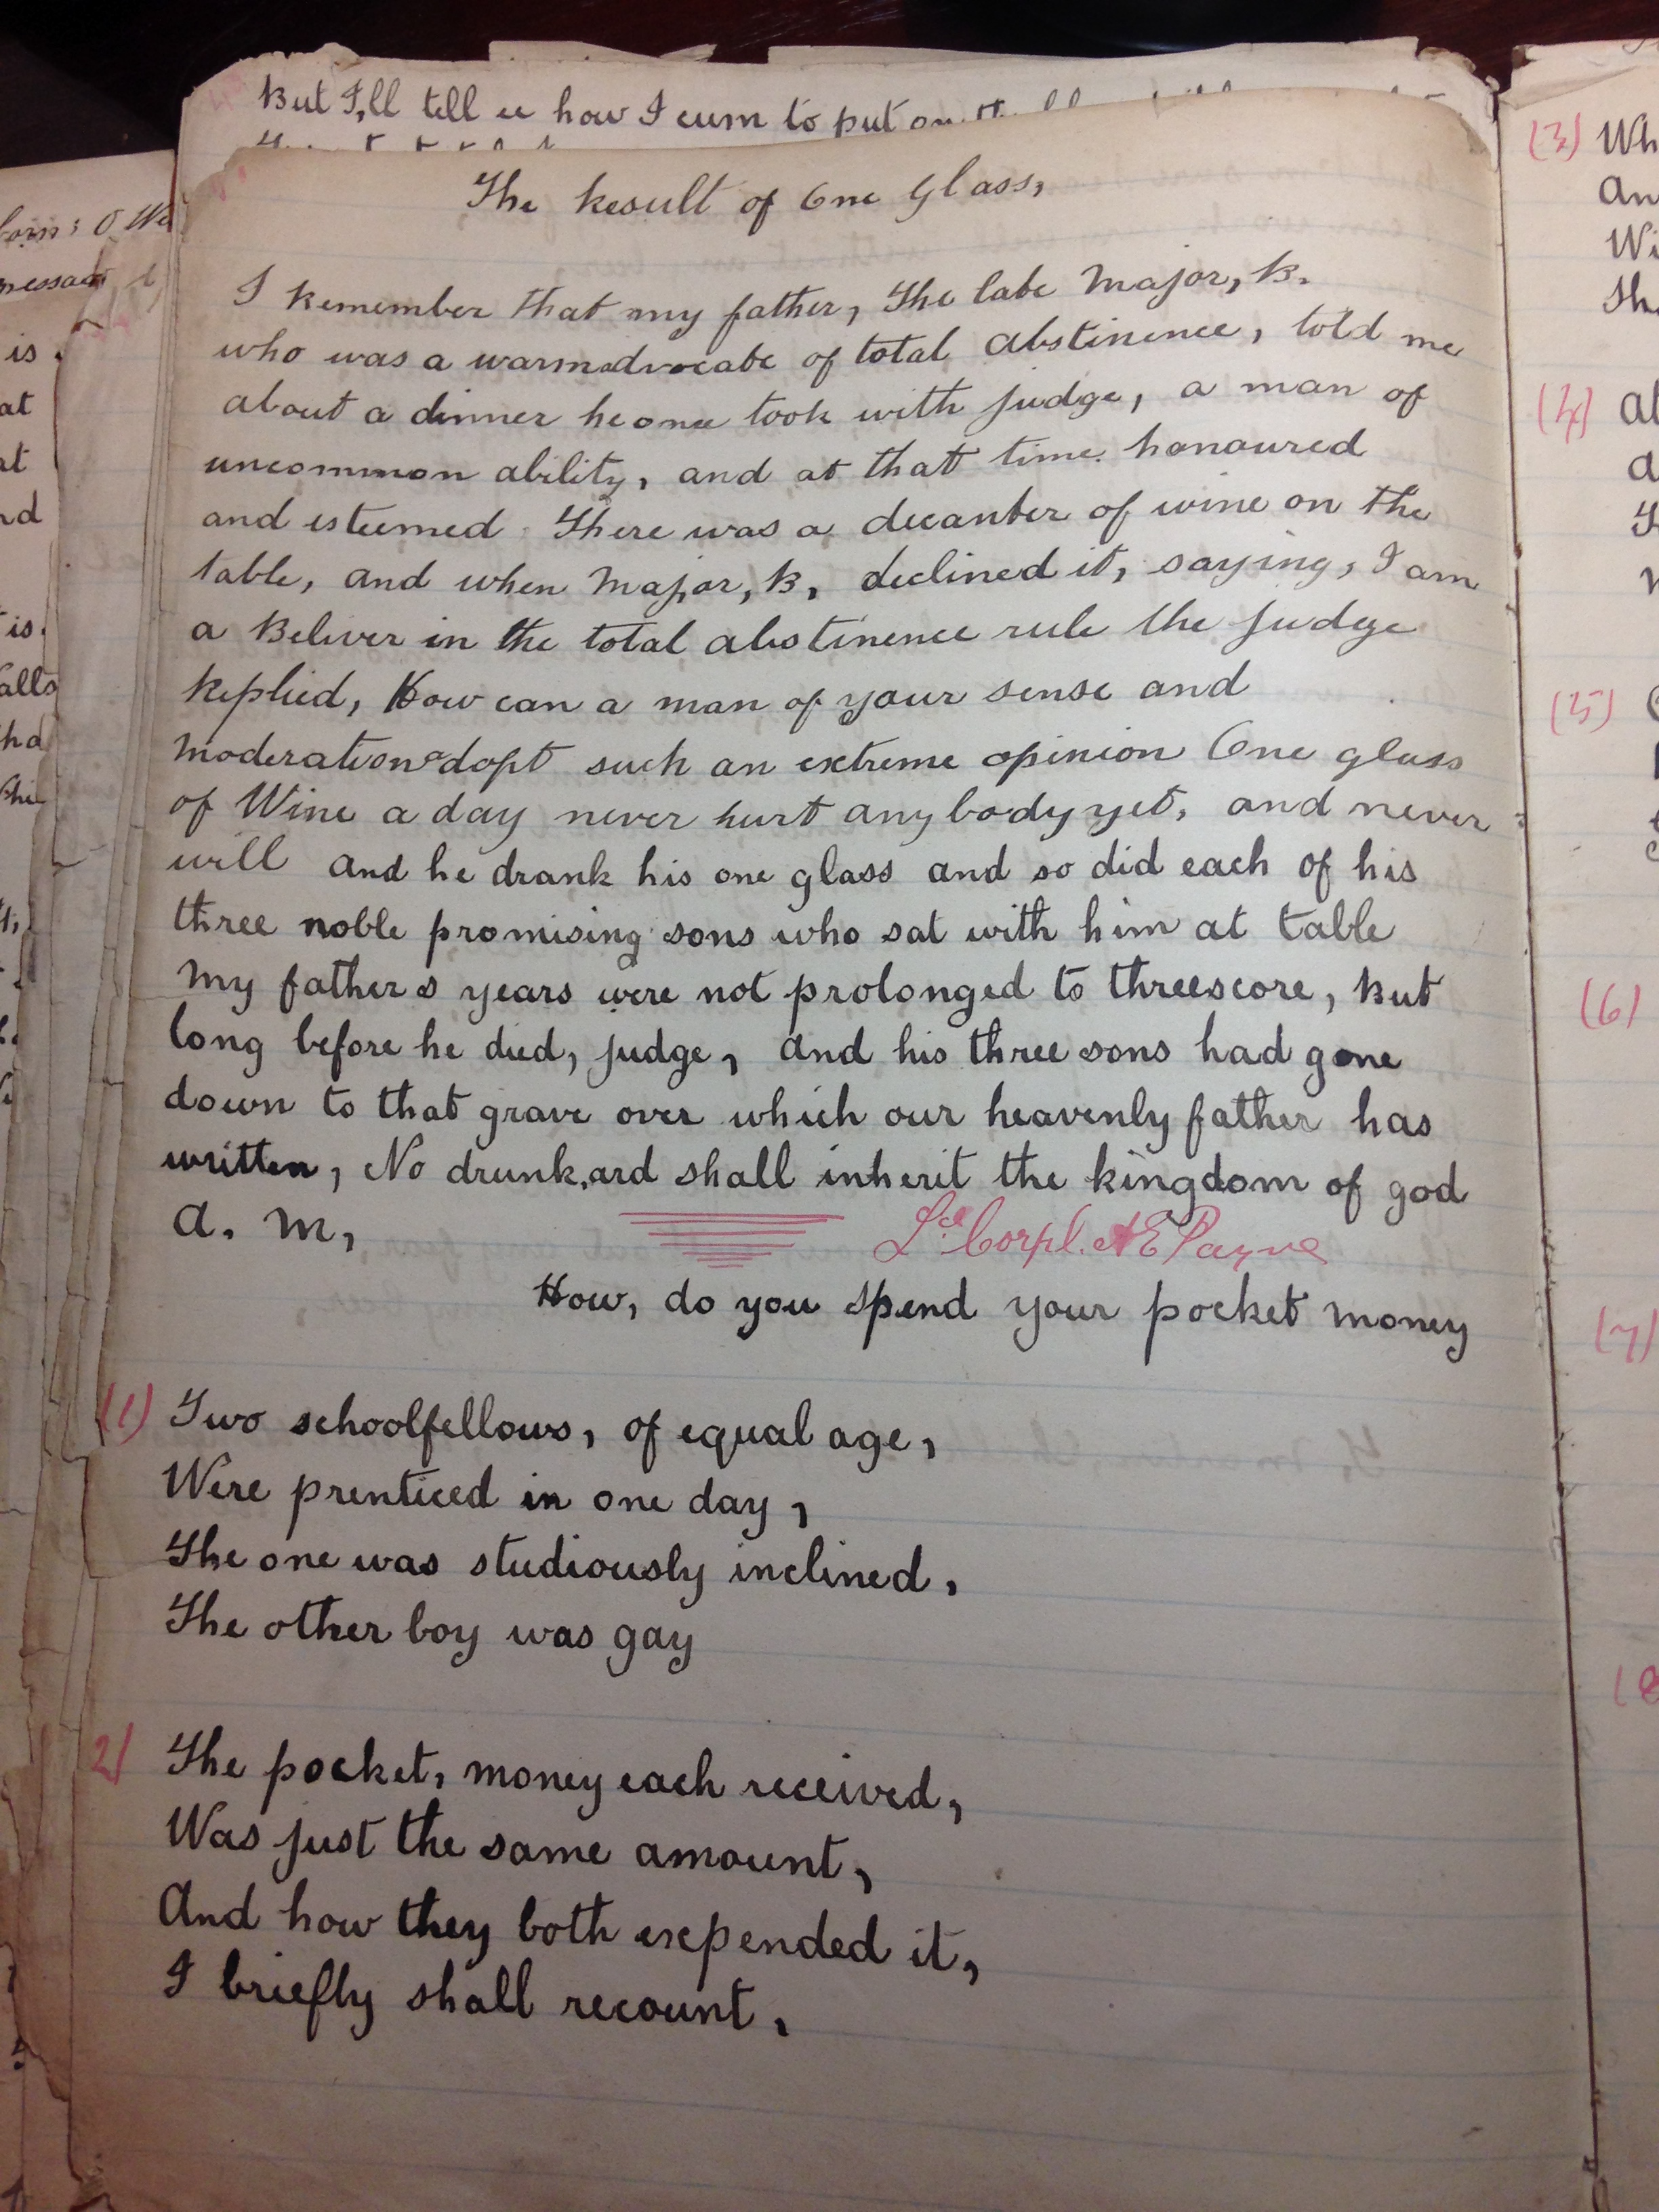 But I,ll tell ee how I cum to put on
The Result of One Glass,
I Remember that my father, The late Major, K.
who was a warm advocate of total abstinence, told me
about a dinner he once took with judge, a man of
uncommon ability, and at that time honoured
and esteemed There was a decanter of wine on the
table, and when Major, K, declined it, saying, I am
a Beliver in the total abstinence rule the judge
Replied, How can a man of your sense and
Moderation adopt such an extreme opinion One glass
of Wine a day never hurt any body yet, and never
will and he drank his one glass and so did each of his
three noble promising sons who sat with him at table
My father s years were not prolonged to threescore, But
long before he died, judge, and his three sons had gone
down to that grave over which our heavenly father has
written, No drunk,ard shall inherit the kingdom of god
A. M,
Lce Corpl. A E Payne
How, do you spend your pocket money
(1) Two schoolfellows, of equal age,
Were prenticed in one day,
The one was studiously inclined,
The other boy was gay
2) The pocket, money each received,
Was just the same amount,
And how they both expended it,
I briefly shall recount,
(3)
(4)
(5)
(6)
(7)